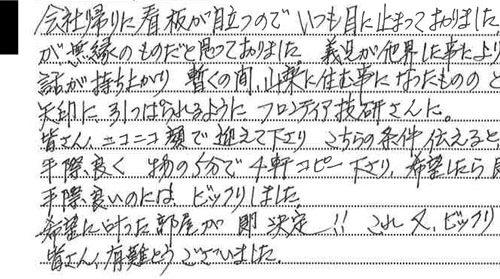 会社帰りに看板が目立つので いつも目に止まっておりました
が無縁のものだと思っておりました。義兄が他界した事により
話が持ち上がり 暫くの間、山梨に住む事になったものの と
矢印に引っぱられるように フロンティア技研さんに。
皆さん、ニコニコ顔で迎えて下さり こちらの条件伝えると
手際良く 物の5分で4軒コピー下さり、希望したら
手際良いのには ビックリしました。
希望に叶った部屋が 即 決定!! これ又、ビックリ
皆さん、有難とうございました。